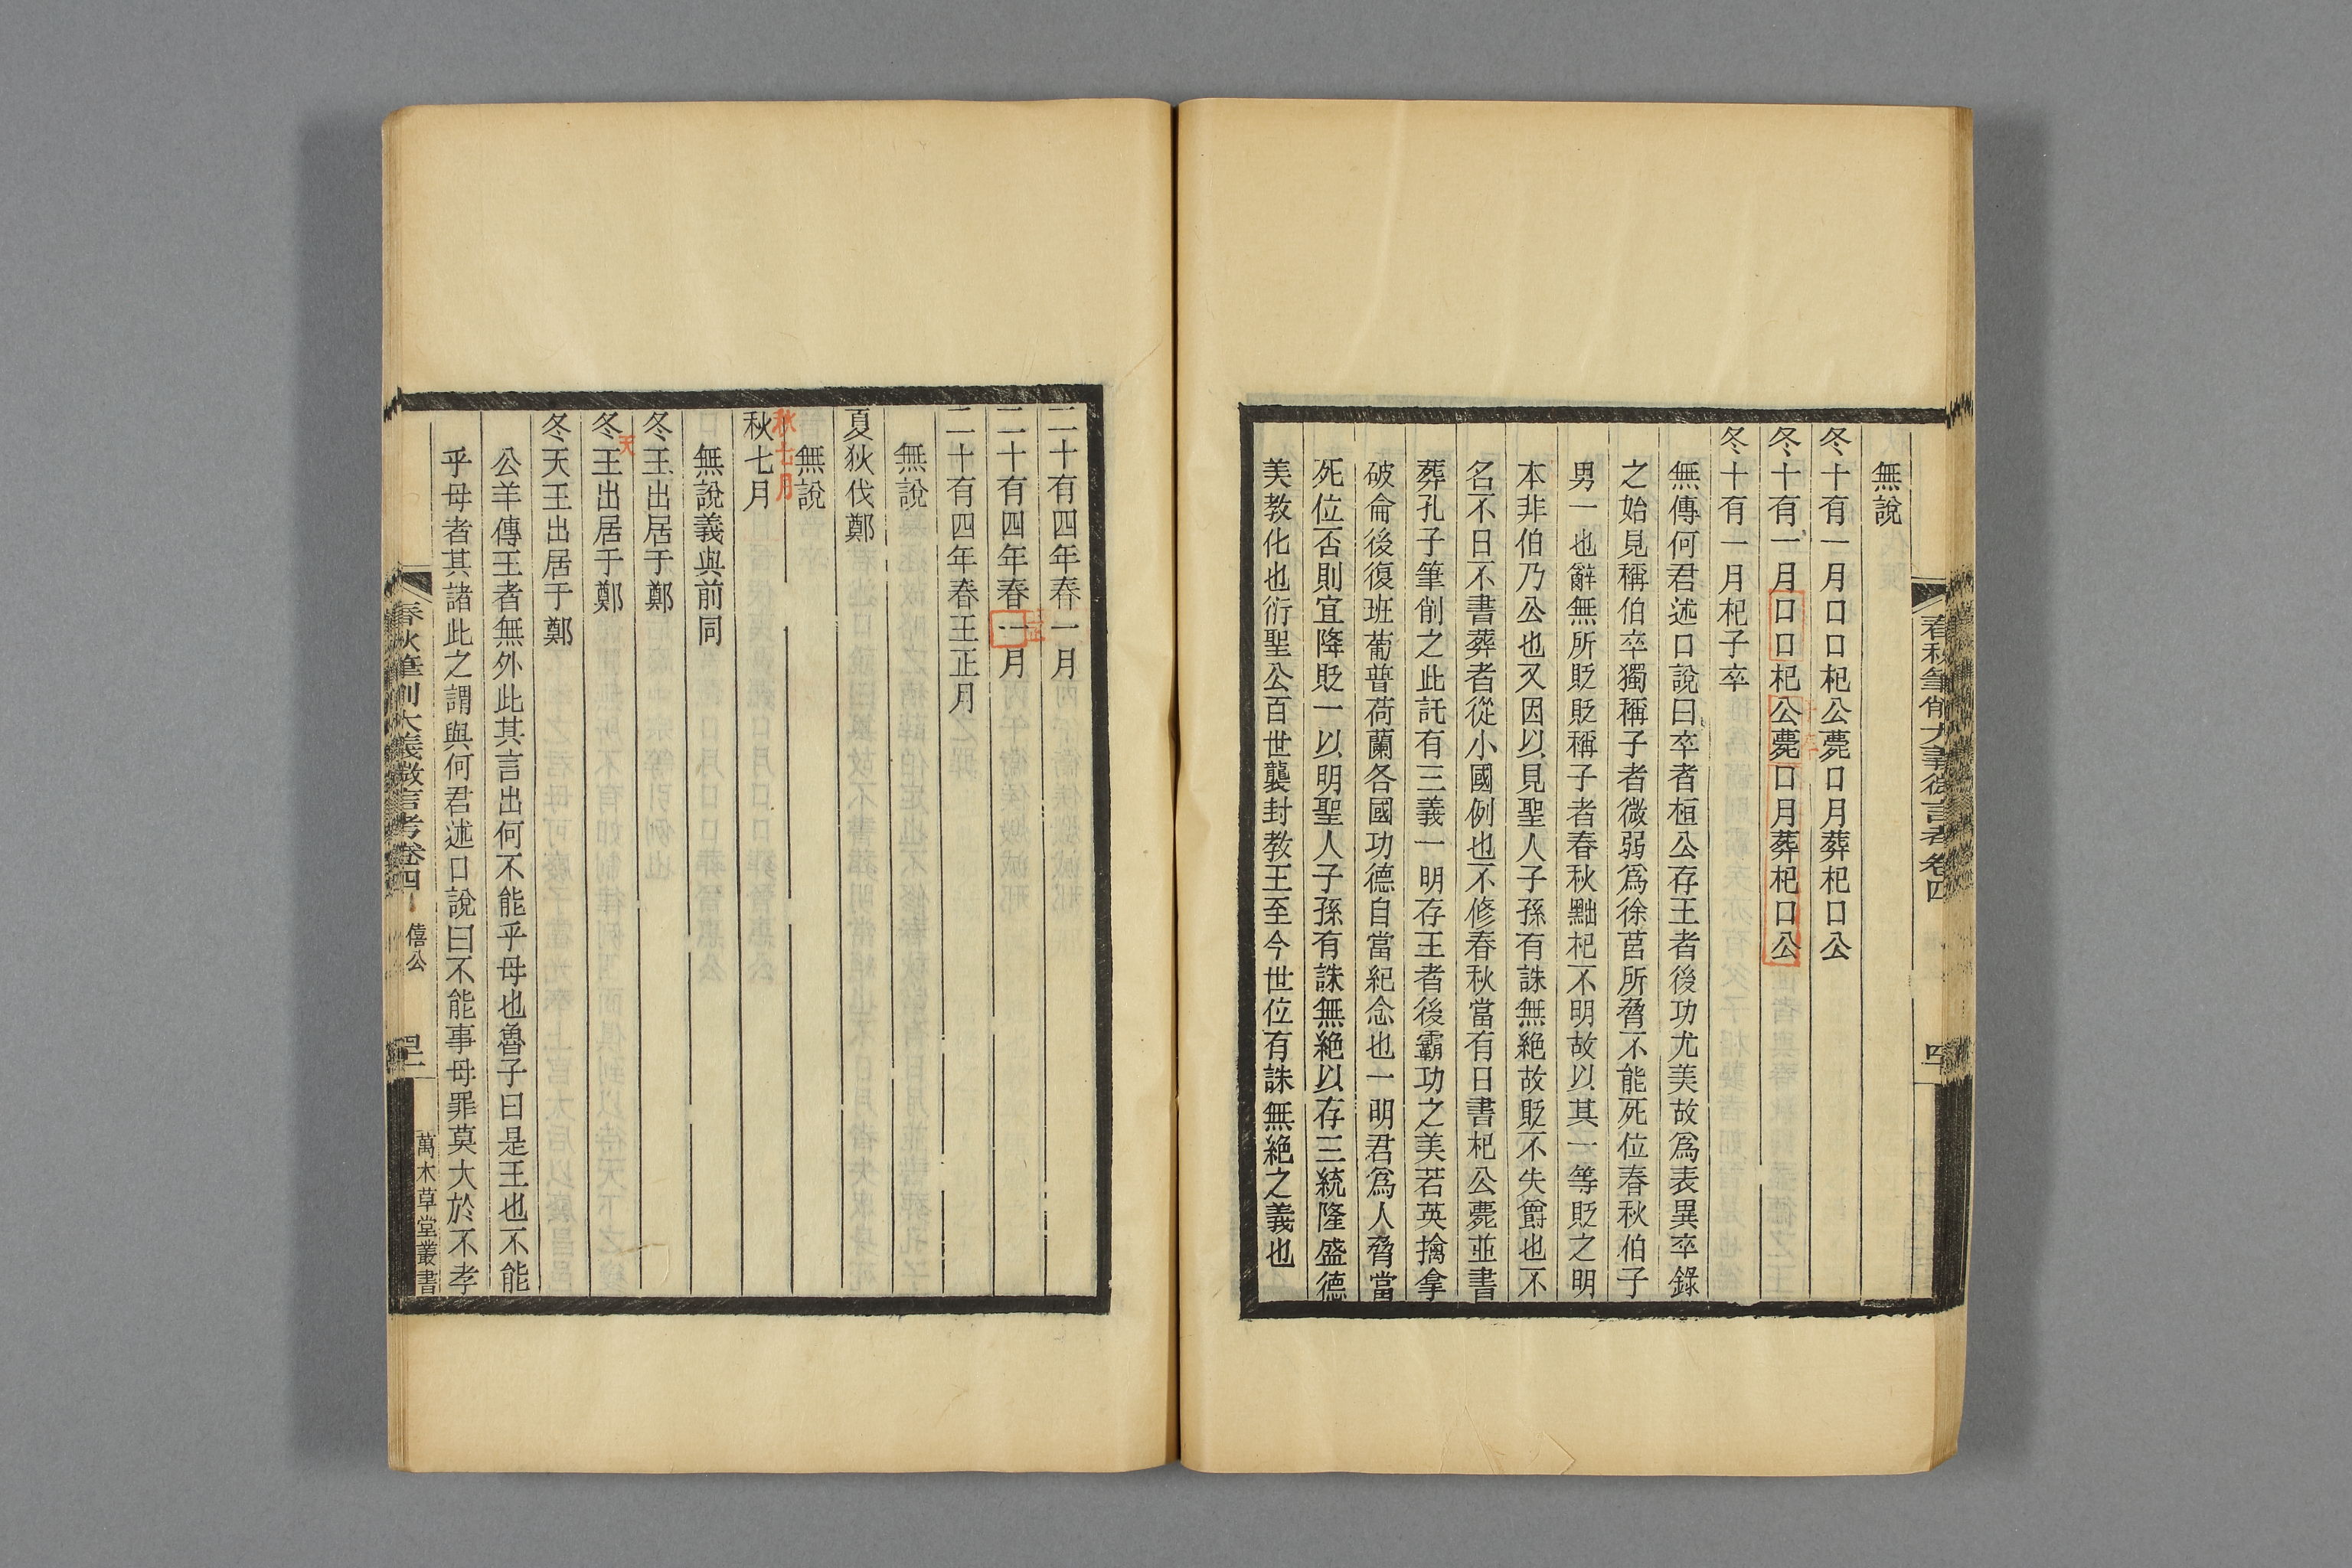 春秋筆削大義微言考卷四
無說
冬十有一月口口杞公薨口月葬杞口公
冬十有一月口口杞公薨口月葬杞口公
冬十有一月杞子卒
無傳何君述口說曰卒者桓公存王者後功尤美故爲表異卒錄
之始見稱伯卒獨稱子者微弱爲徐莒所脅不能死位春秋伯子
男一也辭無所貶貶稱子者春秋黜杞不明故以其一等貶之明
本非伯乃公也又因以見聖人子孫有誅無絕故貶不失爵也不
名不日不書葬者從小國例也不修春秋當有日書杞公薨並書
葬孔子筆削之此託有三義一明存王者後霸功之美若英擒拿
破侖後復班葡普荷蘭各國功德自當紀念也一明君爲人脅當
死位否則宜降貶一以明聖人子孫有誅無絕以存三統隆盛德
美教化也衍聖公百世襲封教王至今世位有誅無絕之義也
二十有四年春一月
二十有四年春一月
王正
二十有四年春王正月
無說
夏狄伐鄭
無說
秋七月
秋七月
無說義與前同
冬王出居于鄭
天
冬王出居于鄭
冬天王出居于鄭
公羊傳王者無外此其言出何不能乎母也魯子曰是王也不能
乎母者其諸此之謂與何君述口說曰不能事母罪莫大於不孝
春秋筆削大義微言考卷四 僖公
萬木草堂叢書